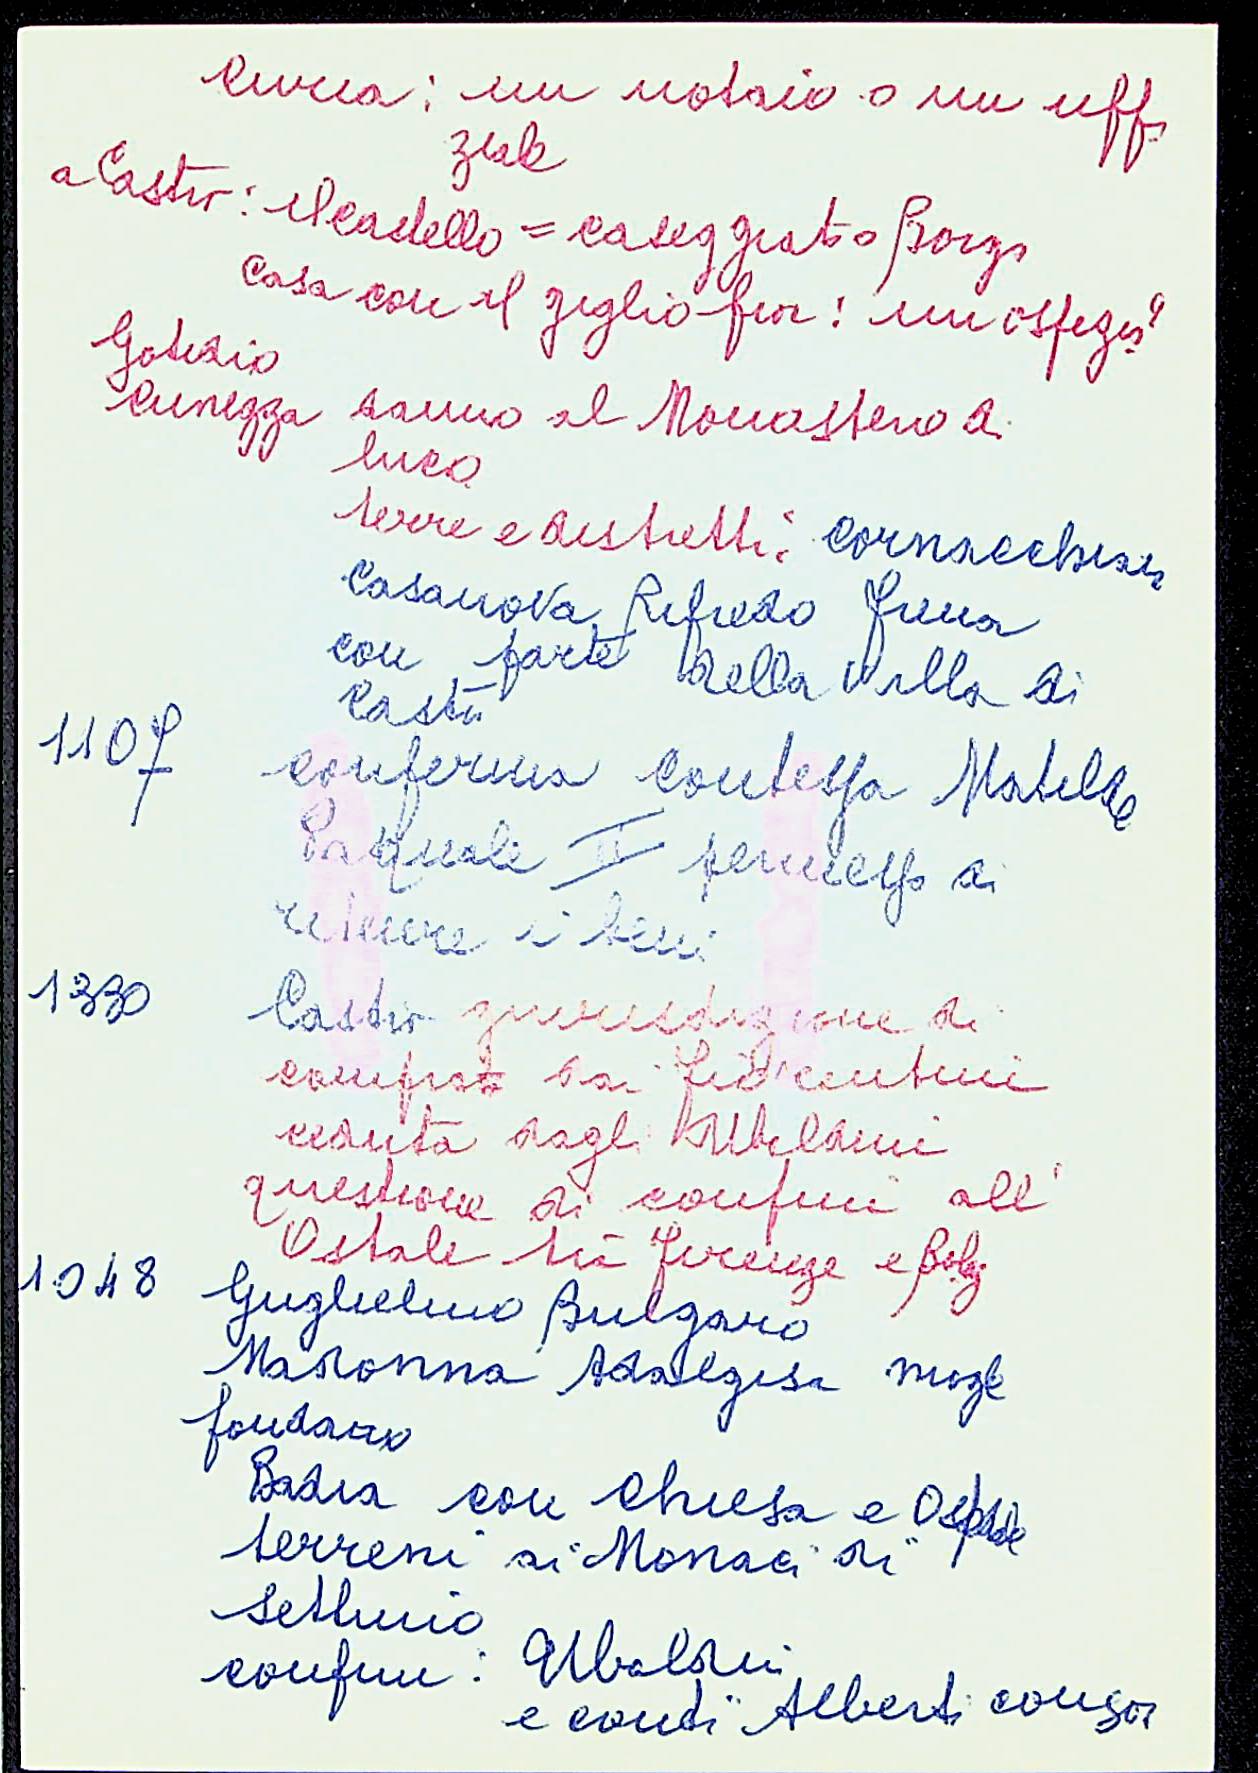 curia: un notaio o un uff
ziale
a Castro: il castello = caseggiato Borgo
Casa con il giglio fior: un ospizio?
Gotidio
Cunizza danno al Monastero di
luco
terre e distretti: cornacchiaia
Casanova, Rifredo Frena
con parte della Villa di
Castro
1107 conferma contessa Matilde
Pasquale II permesso di
ritenere i beni
1330 Castro giurisdizione di
comprata dai fiorentini
ceduta dagli Ubaldini
questione di confini all'
Ostale tra Firenze e Bolog
1048 Guglielmo Bulgaro
Madonna Adalgisa moglie
fondano
Badia con chiesa e Ospedale
terreni ai Monaci di
settimio
confini: Ubaldini
e conti Alberti